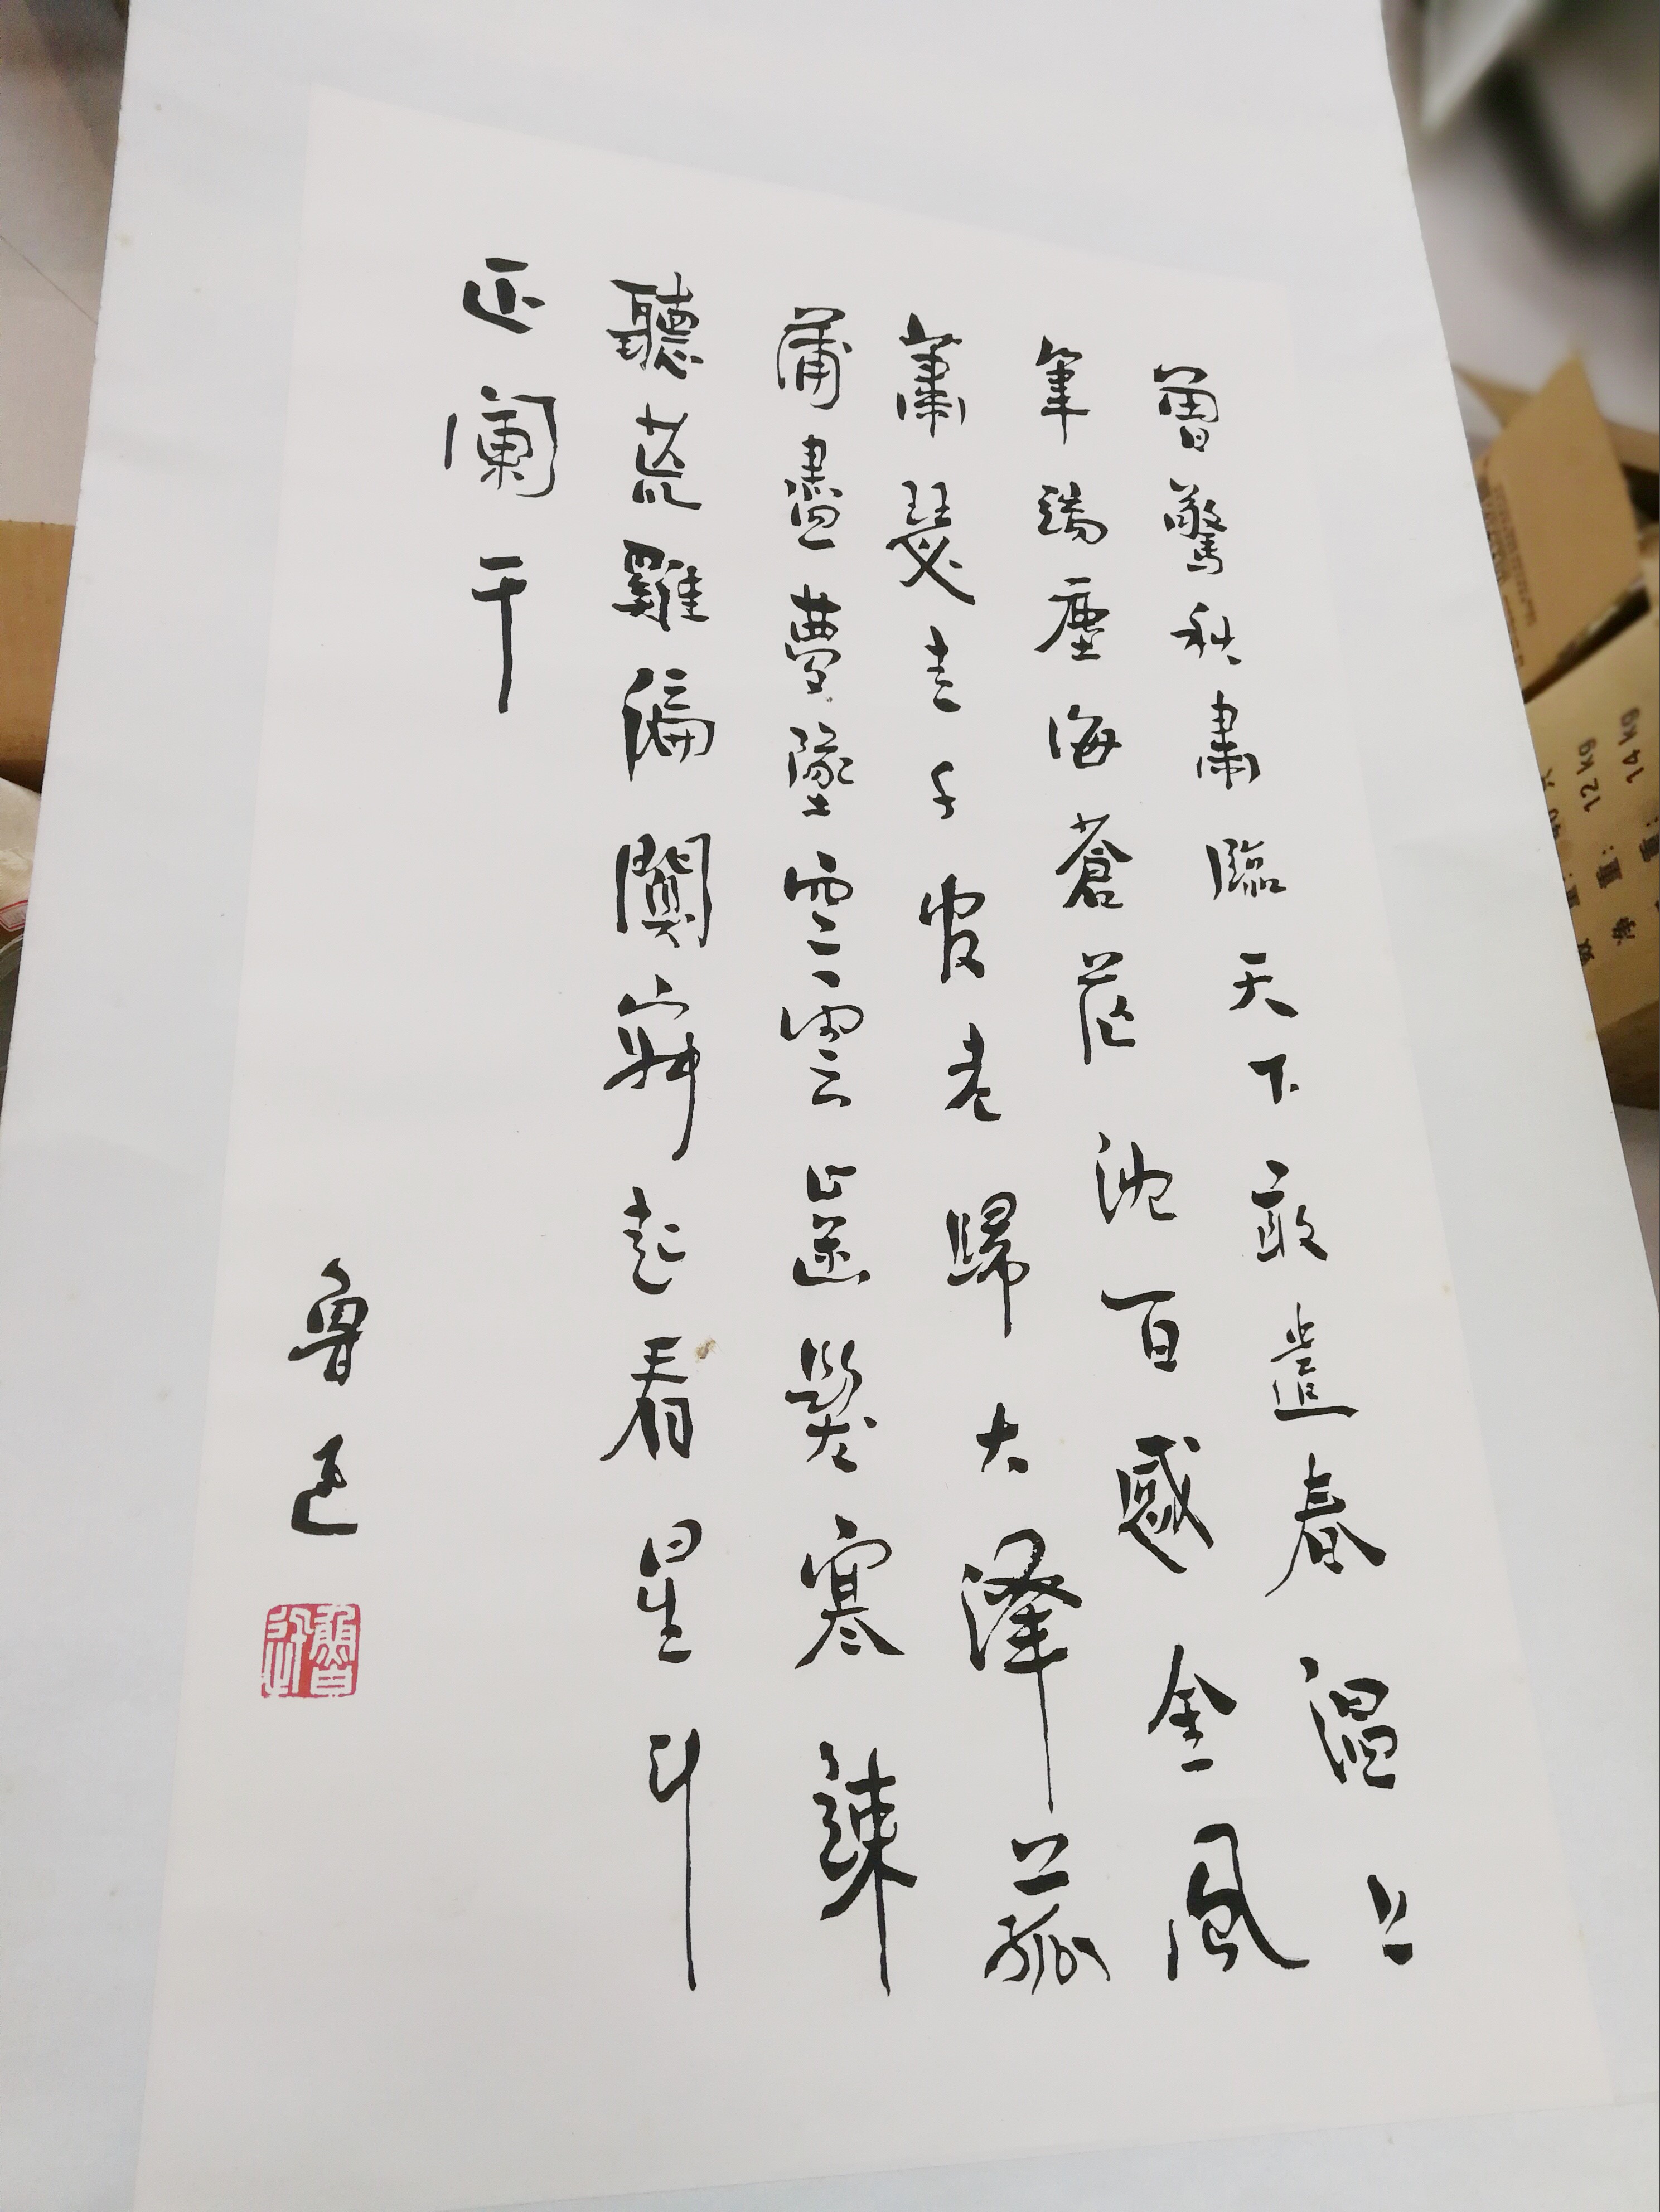 曾驚秋肅臨天下敢遣春温上
筆端塵海蒼茫沈百感金風
蕭瑟走千官老歸大澤菰
蒲盡夢墜空雲齒髮寒竦
聽荒雞偏闃寂起看星斗
正闌干
魯迅
魯迅
净 重: 12 kg
重: 14 kg